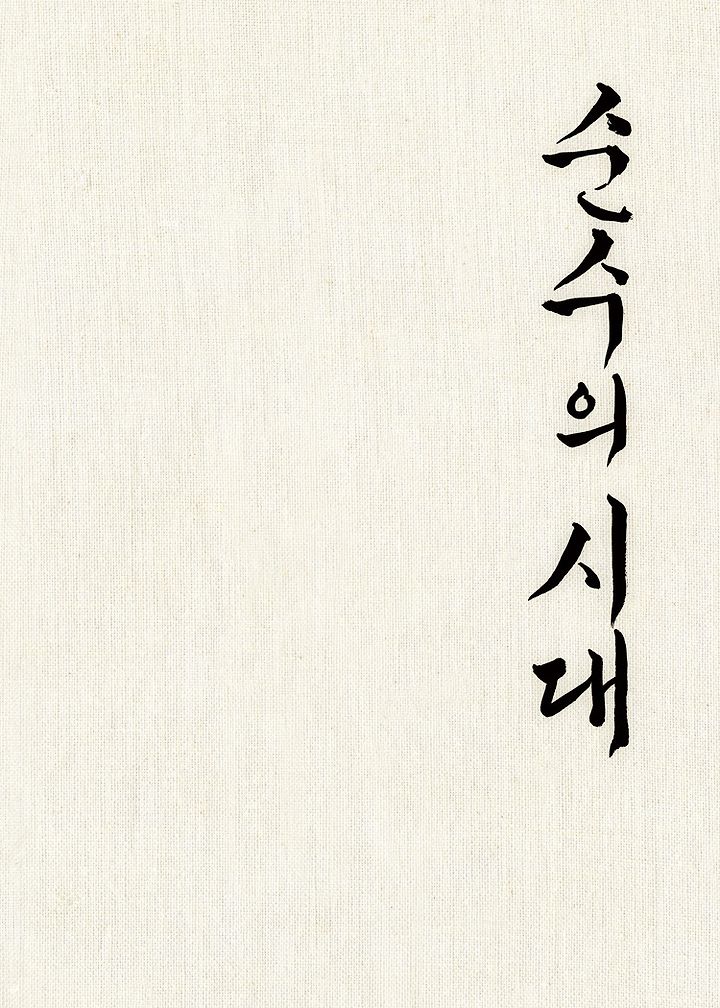 순수의 시대